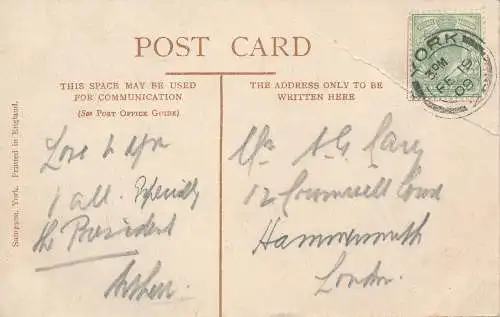 POST CARD
THIS SPACE MAY BE USED
FOR COMMUNICATION
(SEE POST OFFICE GUIDE)
THE ADDRESS ONLY TO BE
WRITTEN HERE
Sampson, York. Printed in England.
YORK
3PM
09
Love to you
all. Especially
the President
Arthur.
A G Cary
12
Hammersmith
London.